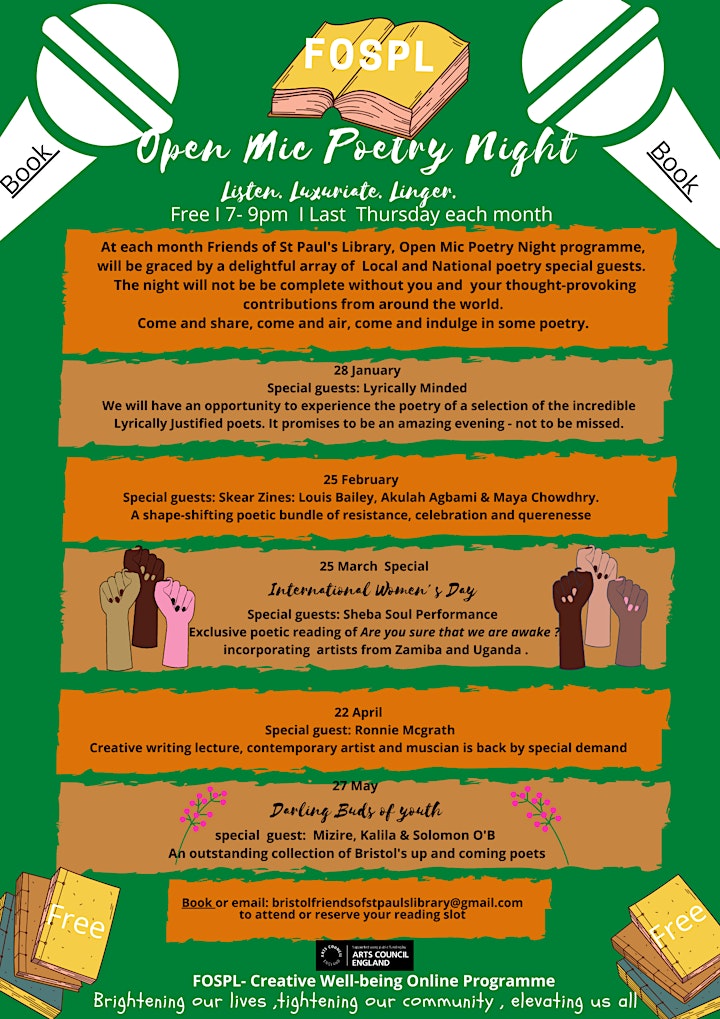 FOSPL
Book
Book
Open Mic Poetry Night
Listen. Luxuriate. Linger.
Free I 7- 9pm I Last Thursday each month
At each month Friends of St Paul's Library, Open Mic Poetry Night programme,
will be graced by a delightful array of Local and National poetry special guests.
The night will not be be complete without you and your thought-provoking
contributions from around the world.
Come and share, come and air, come and indulge in some poetry.
28 January
Special guests: Lyrically Minded
We will have an opportunity to experience the poetry of a selection of the incredible
Lyrically Justified poets. It promises to be an amazing evening - not to be missed.
25 February
Special guests: Skear Zines: Louis Bailey, Akulah Agbami & Maya Chowdhry.
A shape-shifting poetic bundle of resistance, celebration and querenesse
25 March Special
International Women's Day
Special guests: Sheba Soul Performance
Exclusive poetic reading of Are you sure that we are awake ?
incorporating artists from Zamiba and Uganda .
22 April
Special guest: Ronnie Mcgrath
Creative writing lecture, contemporary artist and muscian is back by special demand
27 May
Darling Buds of youth
special guest: Mizire, Kalila & Solomon O'B
An outstanding collection of Bristol's up and coming poets
Book or email: bristolfriendsofstpaulslibrary@gmail.com
to attend or reserve your reading slot
Free
Free
ARTS COUNCIL
ENGLAND
FOSPL- Creative Well-being Online Programme
Brightening our lives ,tightening our community , elevating us all